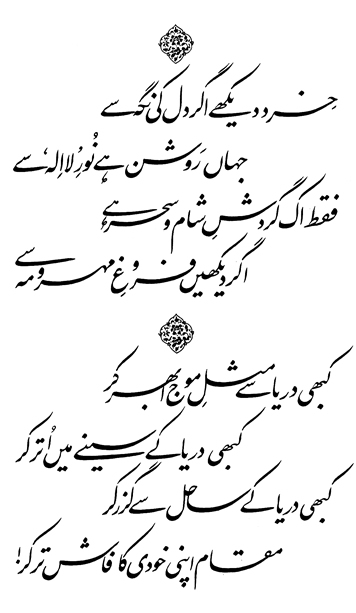 خرد دیکھے اگر دل کی نگہ سے
جہاں رَوشن ہے نُورِ لا اِلٰہ سے
فقط اک گردشِ شام و سحر ہے
اگر دیکھیں فروغِ مہر و مہ سے
کبھی دریا سے مثلِ موج ابھر کر
کبھی دریا کے سینے میں اُتر کر
کبھی دریا کے ساحل سے گزر کر
مقام اپنی خودی کا فاش تر کر!